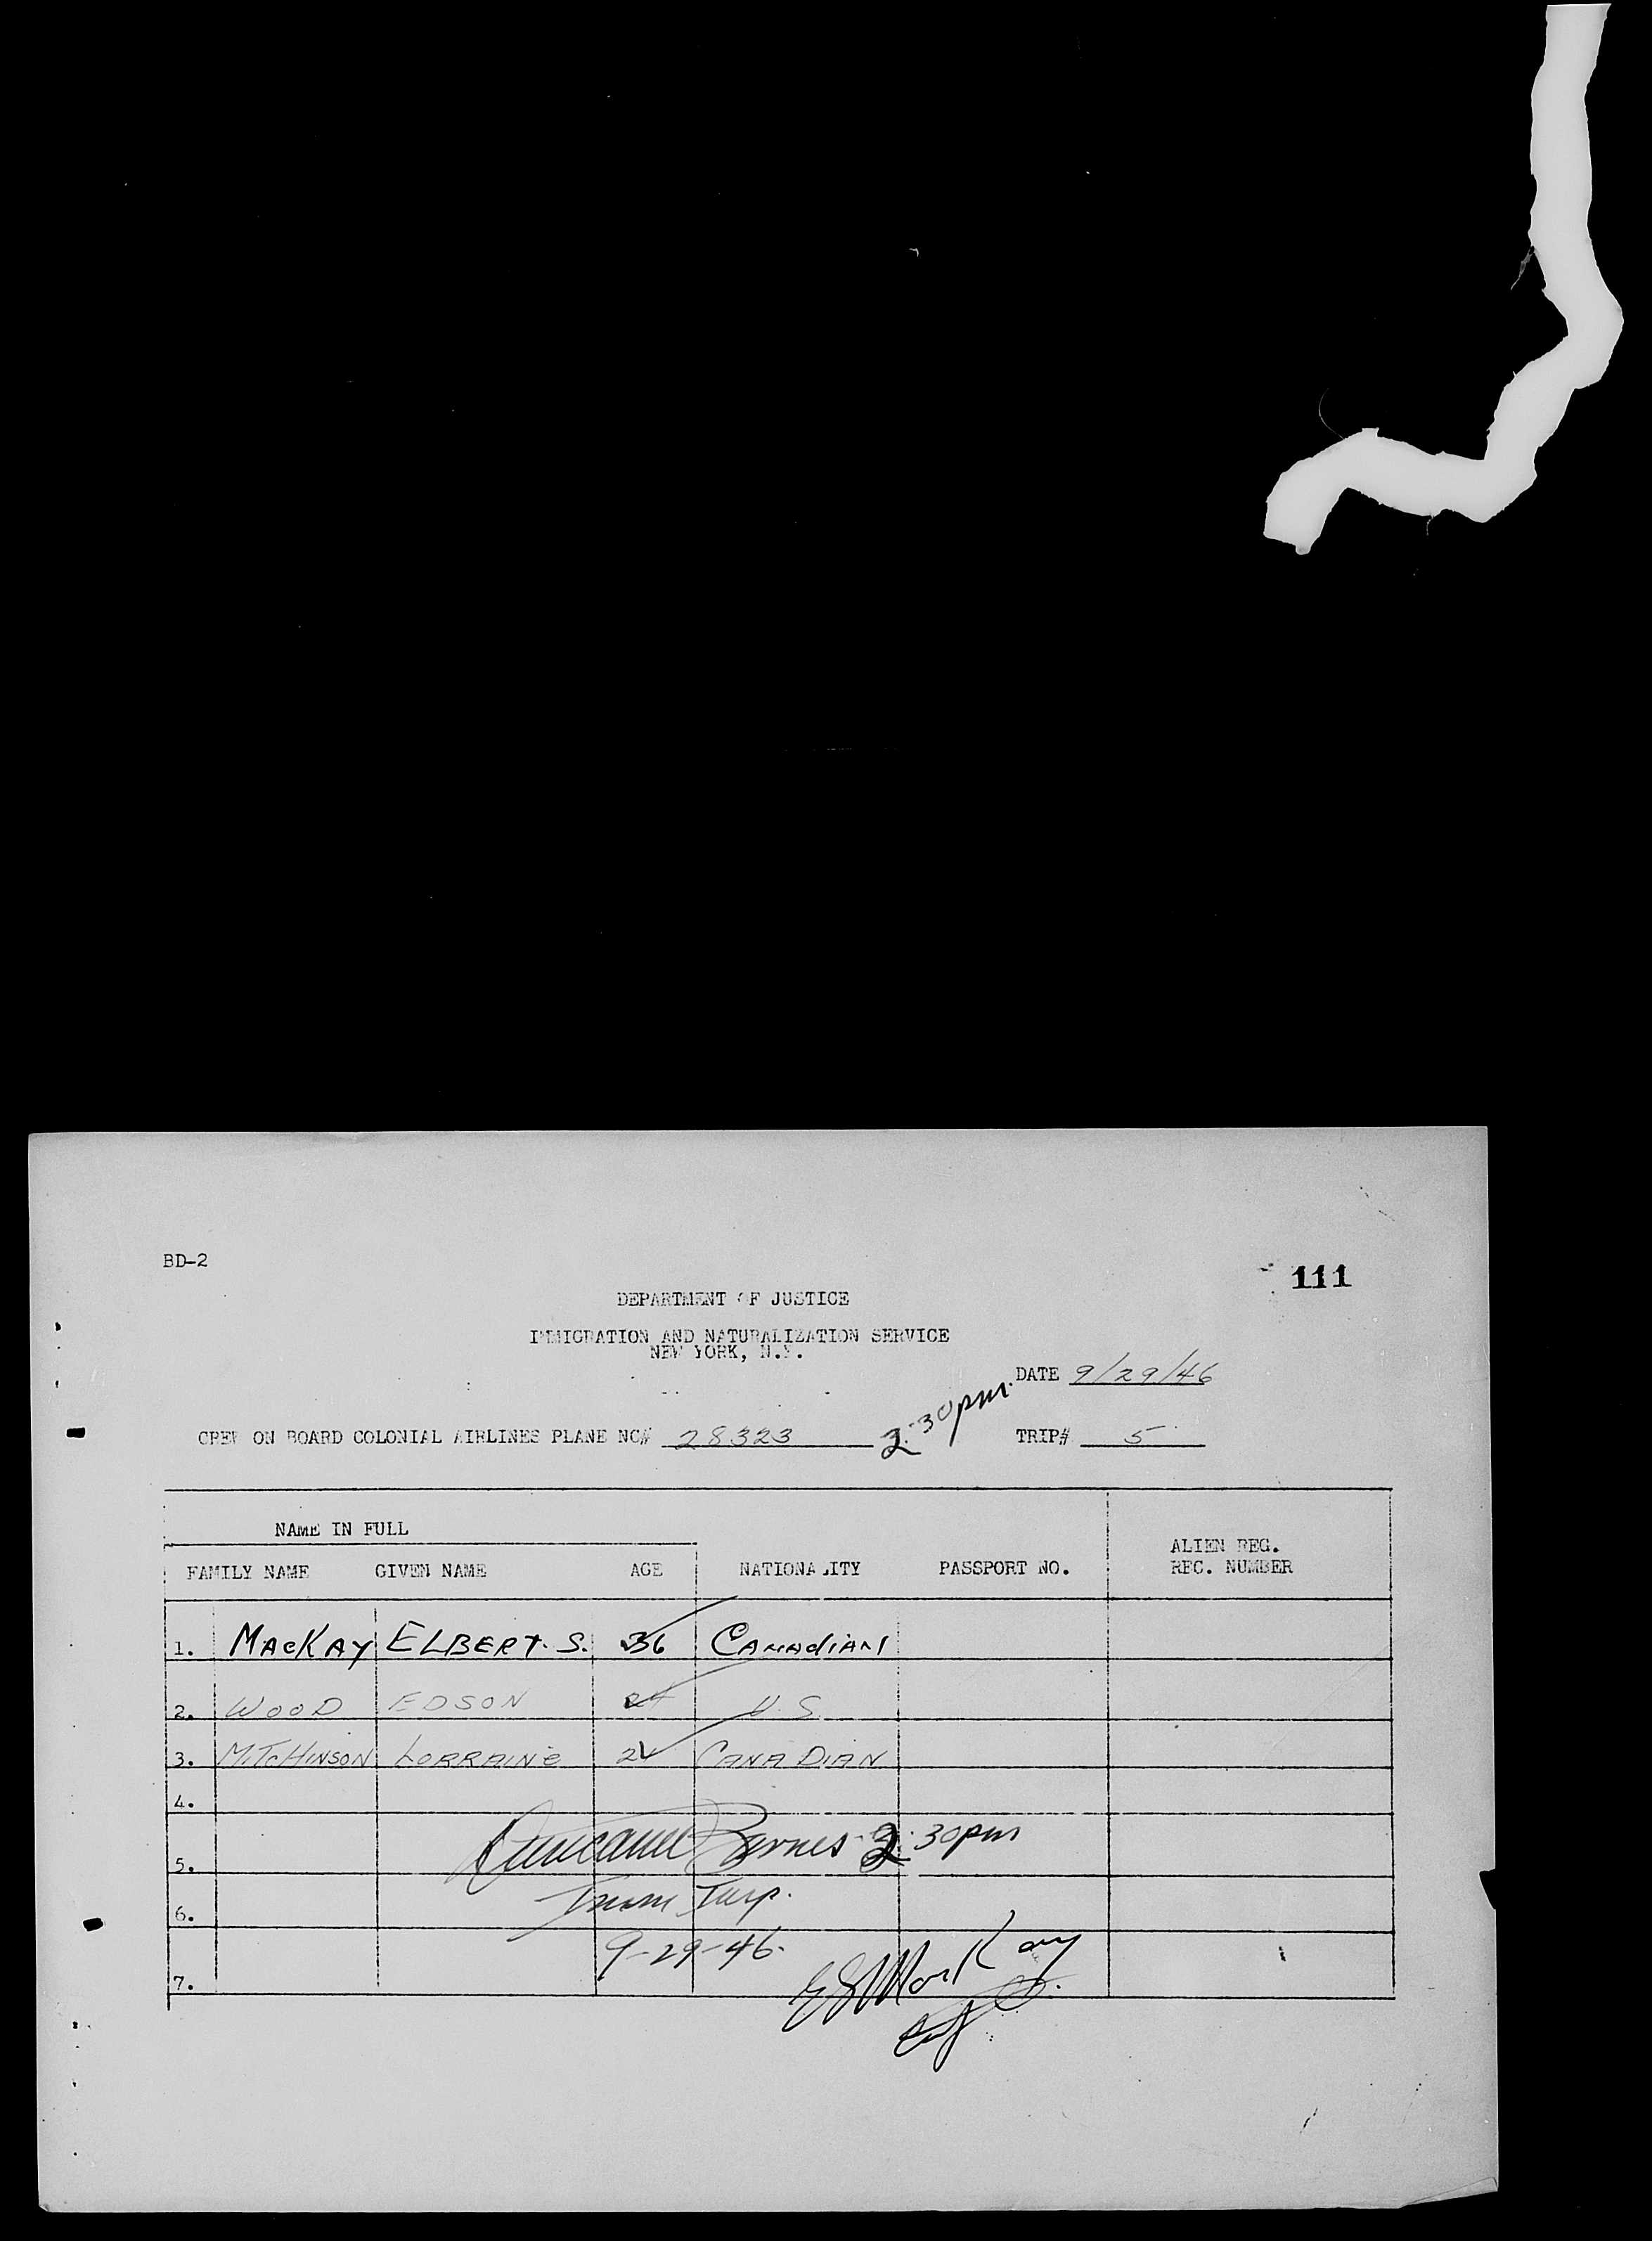 BD-2
111
DEPARTMENT OF JUSTICE
IMMIGRATION AND NATURALIZATION SERVICE
NEW YORK, N.Y.
DATE 9/29/46
CREW ON BOARD COLONIAL AIRLINES PLANE NC# 28323 2:30pm. TRIP# 5
NAME IN FULL
FAMILY NAME GIVEN NAME AGE NATIONALITY PASSPORT NO. ALIEN REG. REC. NUMBER
1. MacKAY ELBERT. S. 36 CANADIAN
2. WOOD EDSON 24 U.S.
3. MITCHINSON LORRAINE CANADIAN
4.
5. Byrnes 2:30pm
6. Imm Insp.
9-29-46.
7. ES MacKay